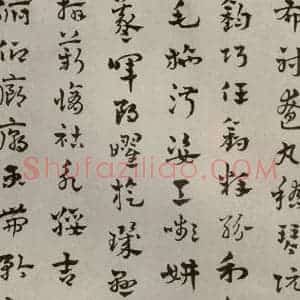 布射遼丸嵇琴阮
鈞巧任釣釋紛利
毛施淑姿工嚬妍
羲暉朗曜旋璣懸
指薪脩祜永綏吉
俯仰廊廟束帶矜
Shufaziliao.com